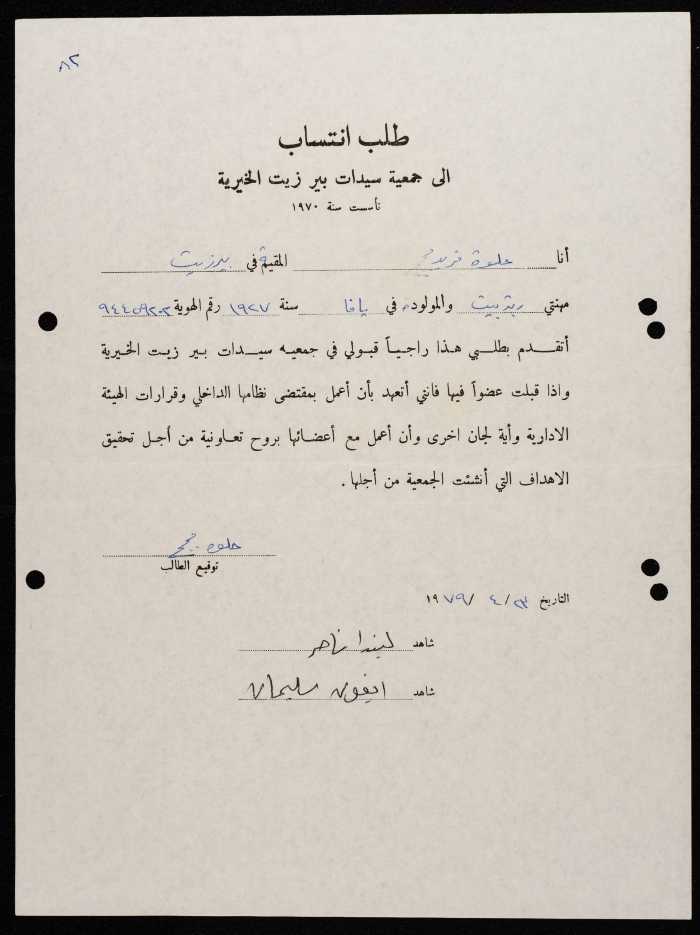 ٨٢
طلب انتساب
الى جمعية سيدات بير زيت الخيرية
تأسست سنة ١٩٧٠
أنا حلوة فريد المقيمة في بيرزيت
مهنتي ربة بيت والمولوده في يافا سنة ١٩٢٧ رقم الهوية ٩٤٤٥٩٢٠٣
أتقدم بطلبي هذا راجياً قبولي في جمعيه سيدات بير زيت الخيرية
واذا قبلت عضواً فيها فانني أتعهد بأن أعمل بمقتضى نظامها الداخلي وقرارات الهيئة
الادارية وأية لجان اخرى وأن أعمل مع أعضائها بروح تعاونية من أجل تحقيق
الاهداف التي أنشئت الجمعية من أجلها .
حلوه
توقيع الطالب
التاريخ ٢٣/ ٤ /١٩٧٩
شاهد ليندا ناصر
شاهد ايفون سليمان